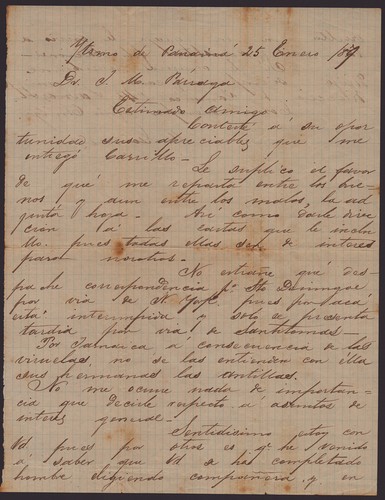 Ystmo de Panamá 25 Enero /87
Dr. J. M. Párraga
Estimado Amigo
Contesté á su opor
tunidad sus apreciables que me
entregó Carrillo—
Le suplico el favor
de qué me reparta entre los bue
nos y aun entre los malos, la ad
junta hoja. Así como darle direc
ción á las cartas que le inclu
yo. pues todas ellas son de interés
para nosotros.—
No estrañe qué des
pache correspondencia pª Sto Domingo
por via de N. York, pues por acá
está interrumpida y solo se presenta
tardia por via de Santhomas—
Por Jamaica á consecuencia de las
viruelas, no se las entienden con ella
sus hermanas las antillas.
No me ocurre nada de importan-
cia que decirle respecto á asuntos de
interés general.—
Sentidisimo estoy con
Vd pues por otros es qe he venido
á saber que Vd se ha completado
hombre eligiendo compañera y en